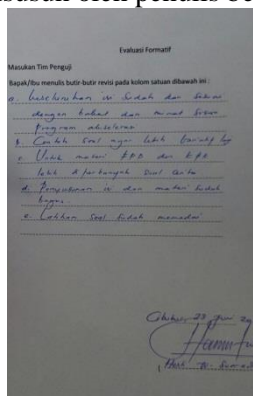 susun oleh penulis be
Evaluasi Formatif
Masukan Tim Penguji
Bapak/Ibu menulis butir-butir revisi pada kolom satuan dibawah ini :
a. keseluruhan isi sudah dan sesuai
dengan bakat dan minat siswa
Program akselerasi
b. Contoh soal agar lebih bariatif lg
c. Untuk materi FPB dan KPK
lebih diperbanyak soal cerita
d. isi dan materi sudah
bagus.
e. Latihan soal sudah memadai
23 Juni